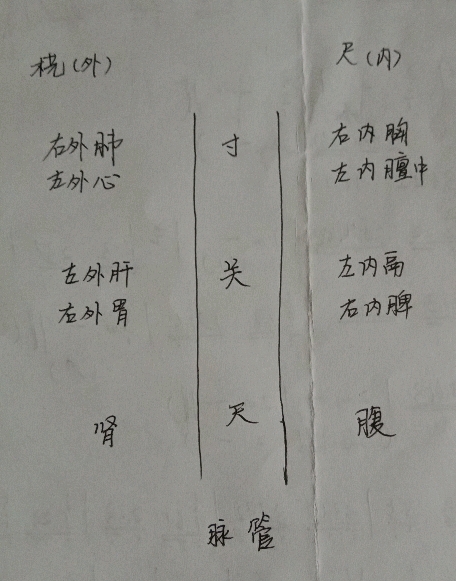 桡(外)
尺(内)
右外肺
左外心
寸
右内胸
左内膻中
左外肝
右外胃
关
左内鬲
右内脾
肾
尺
腹
脉管